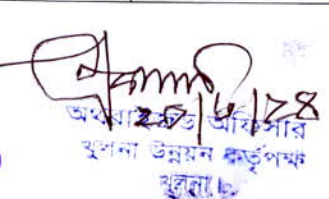 ২৫/৬/২৪
অথরাইজড অফিসার
খুলনা উন্নয়ন কর্তৃপক্ষ
খুলনা।